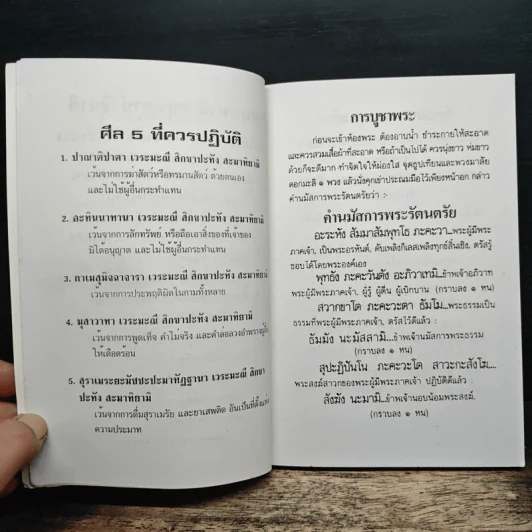 ศีล 5 ที่ควรปฏิบัติ
1. ปาณาติปาตา เวระมะณี สิกขาปะทัง สะมาทิยามิ
เว้นจากการฆ่าสัตว์หรือทรมานสัตว์ ด้วยตนเอง
และไม่ใช้ผู้อื่นกระทำแทน
2. อะทินนาทานา เวระมะณี สิกขาปะทัง สะมาทิยามิ
เว้นจากการลักทรัพย์ หรือถือเอาสิ่งของที่เจ้าของ
มิได้อนุญาต และไม่ใช้ผู้อื่นกระทำแทน
3. กาเมสุมิจฉาจารา เวระมะณี สิกขาปะทัง สะมาทิยามิ
เว้นจากการประพฤติผิดในกามทั้งหลาย
4. มุสาวาทา เวระมะณี สิกขาปะทัง สะมาทิยามิ
เว้นจากการพูดเท็จ คำไม่จริง และคำล่อลวงอำพรางผู้อื่น
ให้เดือดร้อน
5. สุราเมระยะมัชชะปะมาทัฏฐานา เวระมะณี สิกขา
ปะทัง สะมาทิยามิ
เว้นจากการดื่มสุราเมรัย และยาเสพติด อันเป็นที่ตั้งแห่ง
ความประมาท
การบูชาพระ
ก่อนจะเข้าห้องพระ ต้องอาบน้ำ ชำระกายให้สะอาด
และควรสวมเสื้อผ้าที่สะอาด หรือถ้าเป็นไปได้ ควรนุ่งขาว ห่มขาว
ด้วยก็จะดีมาก ทำจิตใจให้ผ่องใส จุดธูปเทียนและพวงมาลัย
ดอกมะลิ ๑ พวง แล้วนั่งคุกเข่าประณมมือไว้เพียงหน้าอก กล่าว
คำนมัสการพระรัตนตรัยว่า :-
คำนมัสการพระรัตนตรัย
อะระหัง สัมมาสัมพุทโธ ภะคะวา...พระผู้มีพระ
ภาคเจ้า, เป็นพระอรหันต์, ดับเพลิงกิเลสเพลิงทุกข์สิ้นเชิง, ตรัสรู้
ชอบได้โดยพระองค์เอง
พุทธัง ภะคะวันตัง อะภิวาเทมิ...ข้าพเจ้าอภิวาท
พระผู้มีพระภาคเจ้า, ผู้รู้ ผู้ตื่น ผู้เบิกบาน (กราบลง ๑ หน)
สวากขาโต ภะคะวะตา ธัมโม...พระธรรมเป็น
ธรรมที่พระผู้มีพระภาคเจ้า, ตรัสไว้ดีแล้ว :
ธัมมัง นะมัสสามิ...ข้าพเจ้านมัสการพระธรรม
(กราบลง ๑ หน)
สุปะฏิปันโน ภะคะวะโต สาวะกะสังโฆ...
พระสงฆ์สาวกของพระผู้มีพระภาคเจ้า ปฏิบัติดีแล้ว :
สังฆัง นะมามิ...ข้าพเจ้านอบน้อมพระสงฆ์.
(กราบลง ๑ หน)